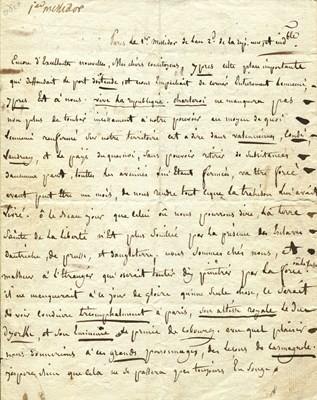 1er messidor
Paris le 1er messidor de l'an 2e de la rép. une et ind.ble
Encore d'Excellentes nouvelles, Mes chers concitoyens, ypres cette place importante
qui deffendait de port d'ostende, et nous Empéchait de cerner Entierement L'ennemi
ypres Est a nous. vive la republique. charleroi ne manquera pas
non plus de tomber incessament a notre pouvoir au moyen de quoi
L'ennemi renfermé sur notre territoire est a dire dans valenciennes, Condé,
Landrecy, et le pays duquesnoi, sans pouvoir retirer de subsistances
d'aucunne part, toutes les avenues lui étant fermées, va être forcé
avant peut être un mois, de nous rendre tout ce que la trahison lui avait
livré. Ô le beau jour que celui où nous pourrons dire la terre
Sainte de la liberté n'Est plus Souillée par la presence des Esclaves
d'autriche, de prusse, et d'angleterre, nous sommes chés nous, et
malheur a L'Etranger qui oserait tenter d'y pénétrer par la force.
il ne manquerait a ce jour de gloire qu'une seule chose, ce serait
de voir conduire triomphalement a paris, son altesse royale le duc
d'yorck, et son Eminence le prince de cobourg. avec quel plaisir
nous donnerions a ces grands personnages, des leçons de carmagnole.
j'espere que cela ne se passera pas toujours En songe